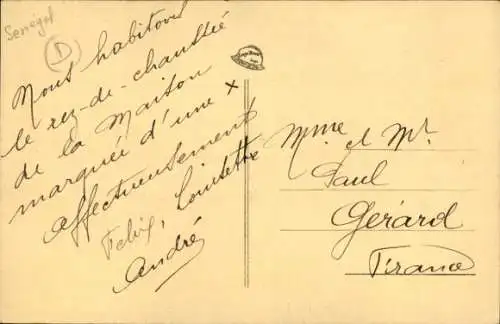 Sénégal
D
Nous habitons
le rez-de-chaussée
de la maison
marquée d'une x
affectueusement
Félix, Louisette
André
Mme et Mr
Paul
Gérard
France